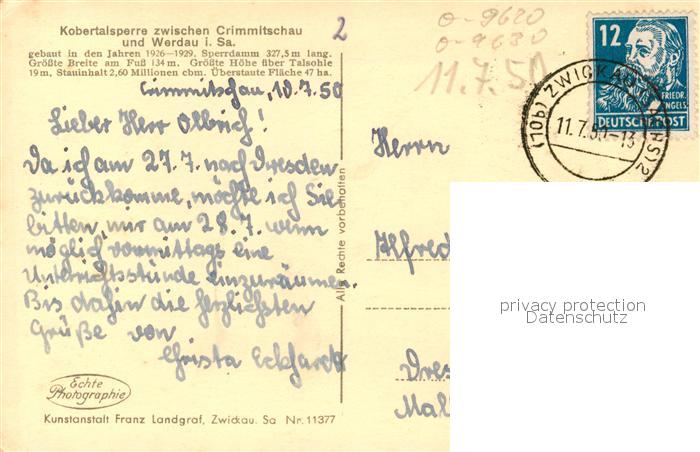 Kobertalsperre zwischen Crimmitschau
und Werdau i. Sa.
gebaut in den Jahren 1926-1929. Sperrdamm 327,5 m lang.
Größte Breite am Fuß 134 m. Größte Höhe über Talsohle
19 m, Stauinhalt 2,60 Millionen cbm. Überstaute Fläche 47 ha.
2
o-9620
o-9630
11.7.50
12
FRIEDR.
ENGELS
DEUTSCHE POST
(10b) ZWICKAU (SACHS) 2
11.7.50-13
Crimmitschau, 10.7.50
Lieber Herr Olbrich!
Da ich am 27.7. nach Dresden
zurückkomme, möchte ich Sie
bitten, mir am 28.7. wenn
möglich vormittags eine
Unterrichtsstunde einzuräumen.
Bis dahin die herzlichsten
Grüße von
Christa Eckhardt
Alle Rechte vorbehalten
Herrn
Alfred
Dres
Mal
privacy protection
Datenschutz
Echte
Photographie
Kunstanstalt Franz Landgraf, Zwickau. Sa Nr. 11377